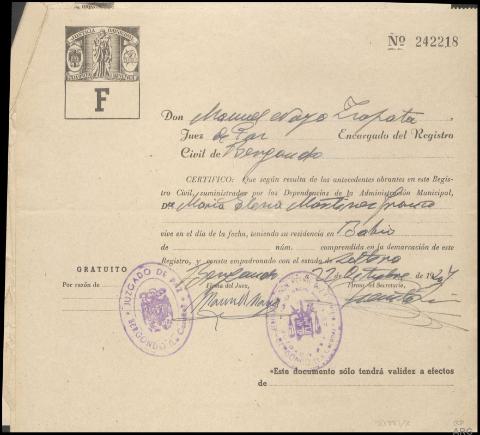 JUSTICIA
Nº 242218
F
Don Manuel Naya Zapata
Juez de Paz Encargado del Registro
Civil de Bergondo
CERTIFICO: Que según resulta de los antecedentes obrantes en este Regis-
tro Civil, suministrados por las Dependencias de la Administración Municipal,
Dª María Elena Martínez
vive en el día de la fecha, teniendo su residencia en Babío
de núm. comprendida en la demarcación de este
Registro, y consta empadronado con el estado de soltera
GRATUITO
Bergondo 22 de Octubre de 19
Por razón de
Firma del Juez, Firma del Secretario,
Manuel Naya
JUZGADO DE PAZ
BERGONDO
«Este documento sólo tendrá validez a efectos
de